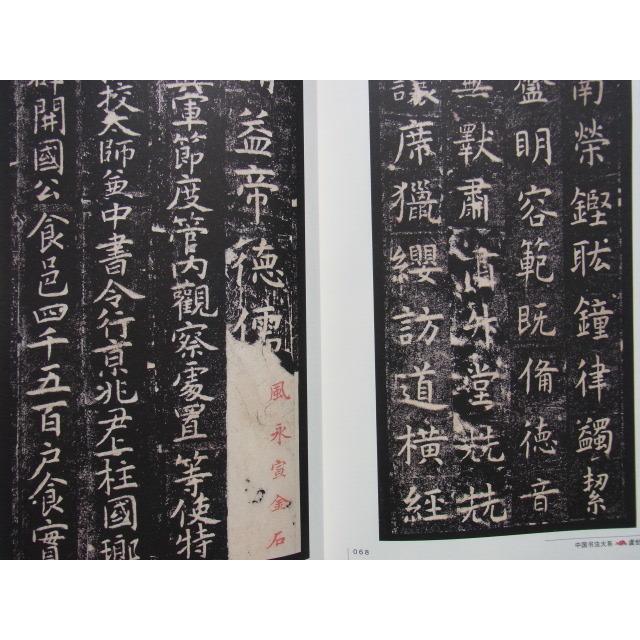 南榮鏗耾鐘律蠲絜
明容範既備德音
無斁肅肅升堂兢兢
讓席獵纓訪道橫經
益帝德儒風永宣金石
軍節度管內觀察處置等使特
校太師兼中書令行京兆尹上柱國瑯
開國公食邑四千五百户食實
068
中国书法大系 虞世